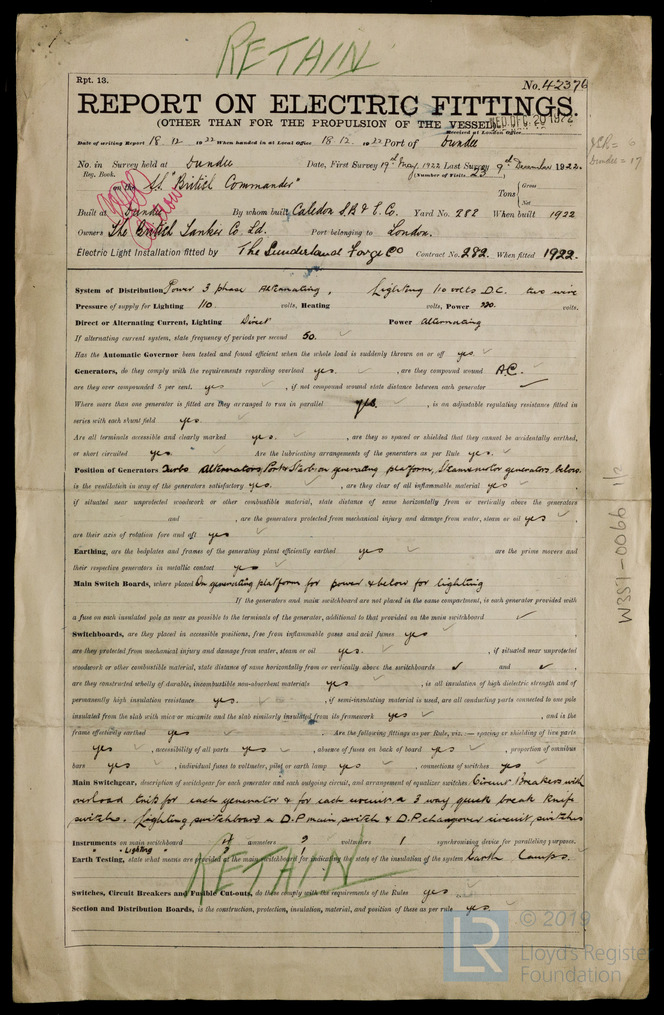 RETAIN
Rpt. 13.
No. 42376
REPORT ON ELECTRIC FITTINGS.
(OTHER THAN FOR THE PROPULSION OF THE VESSEL)
WED. DEC. 20 1922
Received at London Office
Date of writing Report 18 12 1922 When handed in at Local Office 18.12. 1922 Port of Dundee
No. in Survey held at Dundee Date, First Survey 19th May, 1922 Last Survey 9th December 1922.
Reg. Book. (Number of Visits 23)
on the S.S. "British Commander" Tons { Gross
Net
Built at Dundee By whom built Caledon S.B. & E. Co. Yard No. 282 When built 1922
Owners The British Tanker Co. Ld. Port belonging to London.
Electric Light Installation fitted by The Sunderland Forge Co Contract No. 282. When fitted 1922.
System of Distribution Power 3 phase Alternating. Lighting 110 volts D.C. two wire
Pressure of supply for Lighting 110 volts, Heating volts, Power 220. volts.
Direct or Alternating Current, Lighting Direct Power Alternating
If alternating current system, state frequency of periods per second 50. ✓
Has the Automatic Governor been tested and found efficient when the whole load is suddenly thrown on or off yes ✓
Generators, do they comply with the requirements regarding overload yes. ✓ , are they compound wound A.C. ✓
are they over compounded 5 per cent. yes ✓ , if not compound wound state distance between each generator ✓
Where more than one generator is fitted are they arranged to run in parallel yes. ✓ , is an adjustable regulating resistance fitted in
series with each shunt field yes. ✓
Are all terminals accessible and clearly marked yes. ✓ , are they so spaced or shielded that they cannot be accidentally earthed,
or short circuited yes. ✓ Are the lubricating arrangements of the generators as per Rule yes. ✓
Position of Generators Turbo Alternators, Port & Starb. on generating platform, Steam motor generators, below.
is the ventilation in way of the generators satisfactory yes. ✓ , are they clear of all inflammable material yes ✓
if situated near unprotected woodwork or other combustible material, state distance of same horizontally from or vertically above the generators
and , are the generators protected from mechanical injury and damage from water, steam or oil yes ✓
are their axis of rotation fore and aft yes ✓
Earthing, are the bedplates and frames of the generating plant efficiently earthed yes ✓ are the prime movers and
their respective generators in metallic contact yes ✓
Main Switch Boards, where placed On generating platform for power & below for lighting
If the generators and main switchboard are not placed in the same compartment, is each generator provided with
a fuse on each insulated pole as near as possible to the terminals of the generator, additional to that provided on the main switchboard ✓
Switchboards, are they placed in accessible positions, free from inflammable gases and acid fumes yes ✓
are they protected from mechanical injury and damage from water, steam or oil yes. ✓ , if situated near unprotected
woodwork or other combustible material, state distance of same horizontally from or vertically above the switchboards ✓ and ✓
are they constructed wholly of durable, incombustible non-absorbent materials yes ✓ , is all insulation of high dielectric strength and of
permanently high insulation resistance yes. ✓ , if semi-insulating material is used, are all conducting parts connected to one pole
insulated from the slab with mica or micanite and the slab similarly insulated from its framework yes ✓ , and is the
frame effectively earthed yes ✓ . Are the following fittings as per Rule, viz. :— spacing or shielding of live parts
yes ✓ , accessibility of all parts yes ✓ , absence of fuses on back of board yes ✓ , proportion of omnibus
bars yes ✓ , individual fuses to voltmeter, pilot or earth lamp yes ✓ , connections of switches yes ✓
Main Switchgear, description of switchgear for each generator and each outgoing circuit, and arrangement of equalizer switches Circuit Breakers with
overload trips for each generator & for each circuit a 3 way quick break knife
switches. Lighting switchboard a D.P. main switch & D.P. changeover circuit, switches
Instruments on main switchboard ammeters 2 voltmeters 1 synchronizing device for paralleling purposes.
" Lighting
Earth Testing, state what means are provided at the main switchboard for indicating the state of the insulation of the system Earth Lamps.
RETAIN
Switches, Circuit Breakers and Fusible Cut-outs, do these comply with the requirements of the Rules yes ✓
Section and Distribution Boards, is the construction, protection, insulation, material, and position of these as per rule yes. ✓
Dundee = 17
W351-0066 1/2
LR
© 2019
Lloyd's Register
Foundation